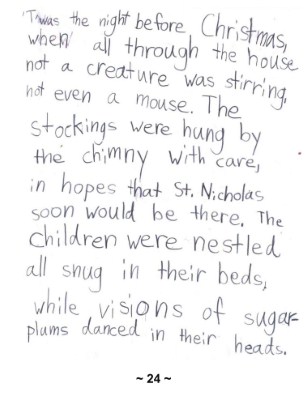 'Twas the night before Christmas,
when all through the house
not a creature was stirring,
not even a mouse. The
stockings were hung by
the chimny with care,
in hopes that St. Nicholas
soon would be there. The
children were nestled
all snug in their beds,
while visions of sugar-
plums danced in their heads.
~ 24 ~